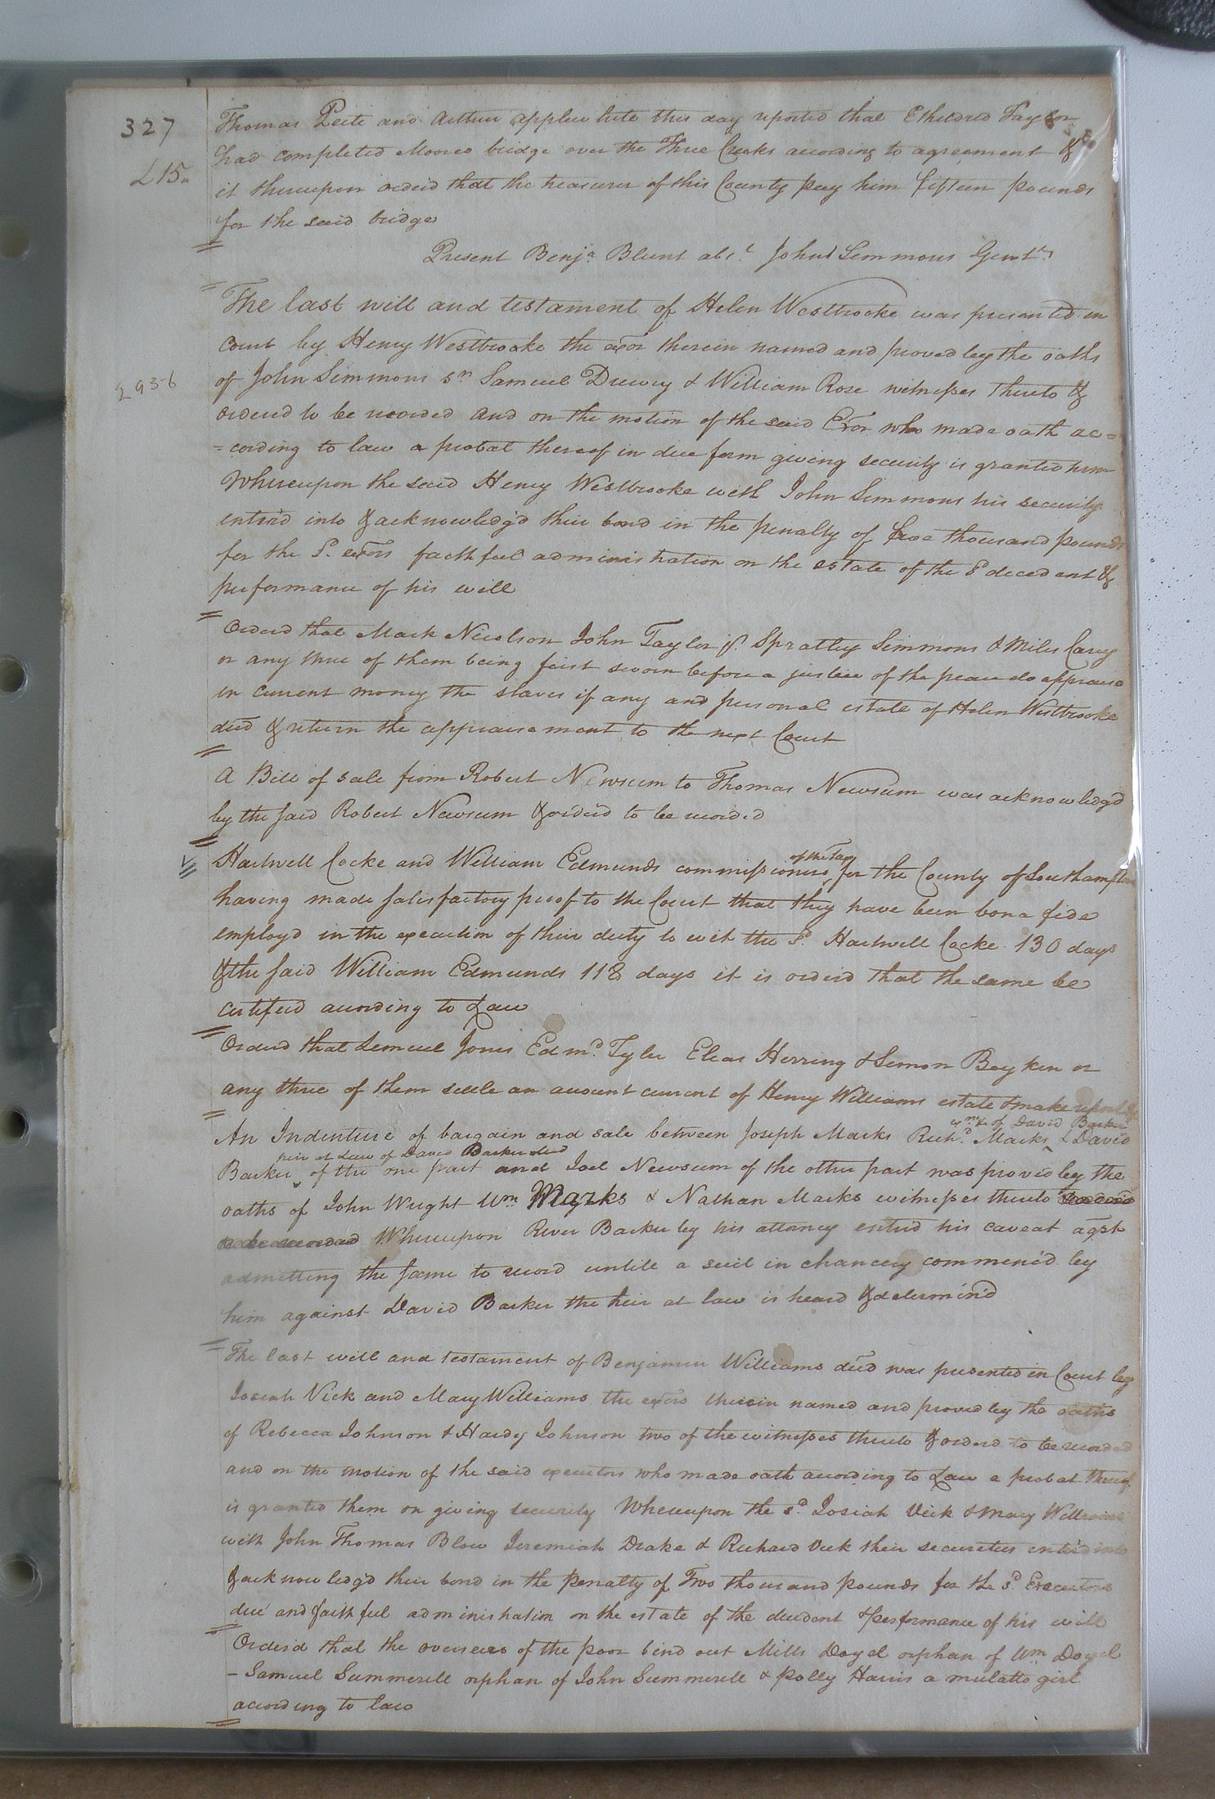 327
Thomas Peete and Arthur Applewhite this day reported that Etheldred Taylor
had completed Moores bridge over the Three Creeks according to agreement &
£15
it thereupon orderd that the treasurer of this County pay him fifteen pounds
for the said bridge
Present Benja. Blunt abst. John Simmons Gent.
The last will and testament of Helen Westbrooke was presented in
Court by Henry Westbrooke the exor therein named and proved by the oaths
of John Simmons Samuel Drewry & William Rose witnesses thereto &
orderd to be recorded and on the motion of the said Exor who made oath ac=
=cording to law a probat thereof in due form giving security is granted him
Whereupon the said Henry Westbrooke with John Simmons his security
enterd into & acknowledg'd their bond in the penalty of thousand pounds
for the Sd. exors faithfull administration on the estate of the decedent &
performance of his will
Orderd that Mark Nicolson John Taylor Spratley Simmons & Miles Carey
or any three of them being first sworn before a justice of the peace do appraise
in current money the slaves if any and personal estate of Helen Westbrooke
decd & return the appraisement to the next Court
A Bill of sale from Robert Newsum to Thomas Newsum was acknowledg'd
by the said Robert Newsum & orderd to be recorded
Hartwell Cocke and William Edmunds commissioners of the Tax for the County of Southampton
having made satisfactory proof to the Court that they have been bona fide
employd in the execution of their duty to wit the Sd. Hartwell Cocke 130 days
& the said William Edmunds 118 days it is orderd that the same be
certified according to Law
Orderd that Lemuel Jones Edmd. Tyler Elias Herring & Simon Boykin or
any three of them settle an account current of Henry Williams estate & make report
An Indenture of bargain and sale between Joseph Marks Richd. Marks & David
heir at Law of David Barker decd
Barker of the one part and Joel Newsum of the other part was proved by the
oaths of John Wright Wm Marks & Nathan Marks witnesses thereto
Whereupon River Barker by his attorney enterd his caveat agst
admitting the same to record untill a suit in chancery commenc'd by
him against David Barker the heir at law is heard & determin'd
The last will and testament of Benjamin Williams decd was presented in Court by
Josiah Vick and Mary Williams the exors therein named and proved by the oaths
of Rebecca Johnson & Hardy Johnson two of the witnesses thereto & orderd to be recorded
and on the motion of the said executors who made oath according to Law a probat thereof
is granted them on giving security Whereupon the sd. Josiah Vick & Mary Williams
with John Thomas Blow Jeremiah Drake & Richard Vick their securities enterd into
& acknowledg'd their bond in the Penalty of Two thousand pounds for the sd Executors
due and faithfull administration on the estate of the decedent & performance of his will
Orderd that the overseers of the poor bind out Mills Doyel orphan of Wm Doyel
- Samuel Summerell orphan of John Summerell & Polly Harris a mulatto girl
according to law